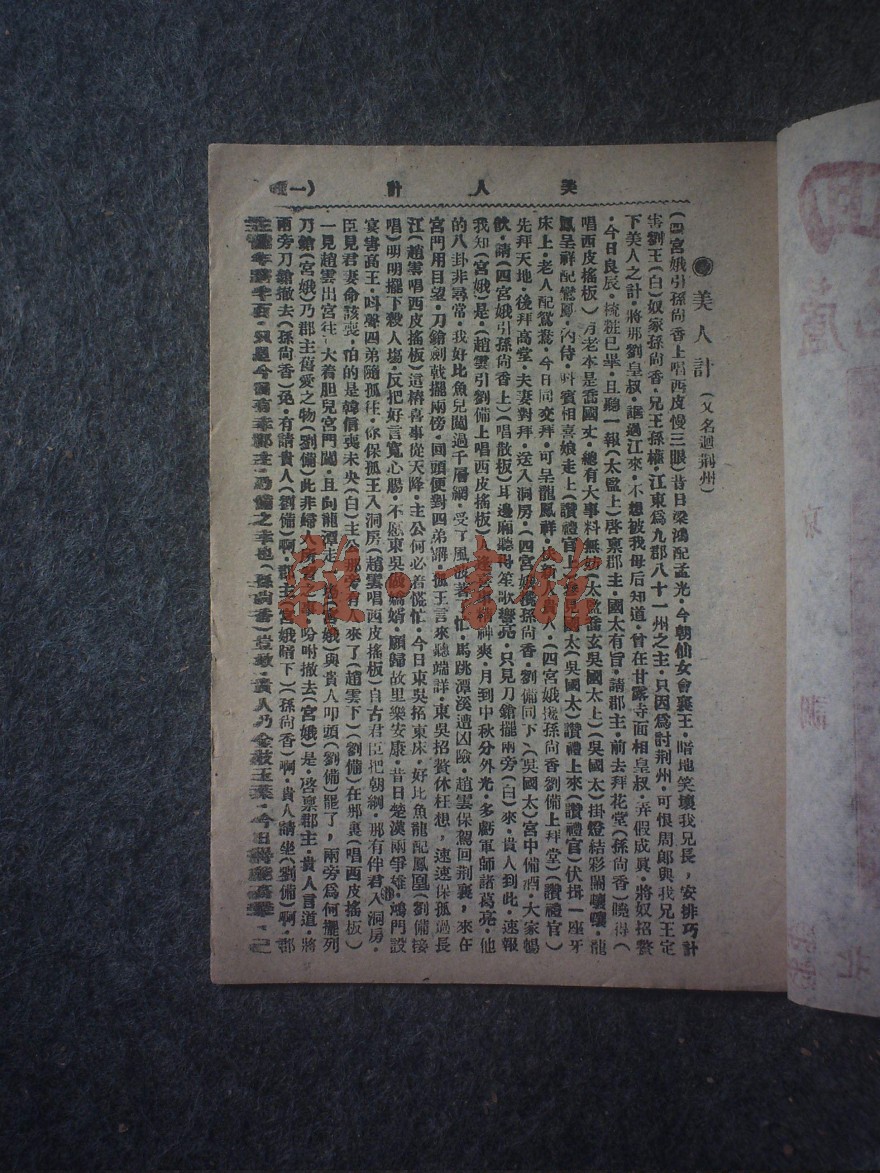 美人計（一）
美人計（又名迴荊州）
（四宮娥引孫尚香上唱西皮慢三眼）昔日梁鴻配孟光・今朝仙女會襄王・暗地笑壞我兄長，安排巧計
害劉王（白）奴家孫尚香・兄王孫權・江東為九郡八十一州之主・只因為討荊州・可恨周郎與我兄王定
下美人之計・將那劉皇叔・誆過江來・不想被我母后知道・曾在甘露寺面相皇叔・弄假成眞・將奴招贅
・今日良辰・梳粧已畢・且聽一報（太監上）啓稟郡主・國太有旨・請郡主・前去拜花堂（孫尚香）曉得（
唱西皮搖板）方老本是喬國丈・總有大事料無妨（太監喬玄吳國太上）（吳國太）掛燈結彩鬧嚷嚷・龍
鳳呈祥配鸞鳳・內侍・叫賓相喜娘走上（讚禮官上）見國太（吳國太）讚禮上來（讚禮官）伏揖一座牙
床上・老人配鴛鴦・今日同交拜・可呈龍鳳祥・人・（四宮娥攙孫尚香劉備上拜堂）（讚禮官）
先拜天地・後拜高堂・夫妻對拜・送入洞房・（四宮娥攙孫尚香・劉備同下）（吳國太）宮中備酒・大家暢
飲・請（四宮娥引孫尚香上）（唱散板）耳邊廂聽得笙歌響亮・只見刀鎗擺兩旁（白）來・貴人到此・速報
我知（宮娥）是・（趙雲引劉備上唱西皮搖板）人逢喜事精神爽・月到中秋分外光・多虧軍師諸葛亮・他
的八卦非尋常・我好比魚兒闖過千層網・受了風波著了忙・馬跳潭溪遭凶險・趙雲保駕回荊襄，來在
宮門用目望・刀鎗劍戟擺兩傍・回頭便對四弟講・孤王言來聽端詳・東吳招贅休枉想，速速保孤過長
江（趙雲唱西皮搖板）這樁喜事從天降・主公何必着慌忙・今日東吳招東床・好比魚龍配鳳凰（劉備接
唱）明明擺下殺人塲・反把好言寬心腸・不愿東吳做嬌婿・願歸故里樂安康・昔日楚漢兩爭雄・鴻門設
宴害高王・叫聲四弟隨孤往・你保孤王入洞房（趙雲唱西皮搖板）自古君臣把朝綱・那有伴君入洞房・
臣見君妻命該喪・怕的是韓信喪未央（白）主公那旁有人來了（趙雲下）（劉備）在那裏（唱西皮搖板）
一見趙雲出宮往・大着胆兒宮門闖・且向龍潭走一（宮娥）與貴人叩頭（劉備）罷了，兩旁為何擺列
刀鎗（宮娥）乃郡主舊愛之物（劉備）此非婦人所・吩咐撤去（宮娥）是・啓稟郡主・貴人言道・將
兩旁刀鎗撤去（孫尚香）免・有請貴人（劉備）啊・郡主（宮娥暗下）（孫尚香）啊・貴人請坐（劉備）啊・郡
主・乃備之幸也（孫尚香）豈敢・貴人乃金枝玉葉・今日
雜・書館